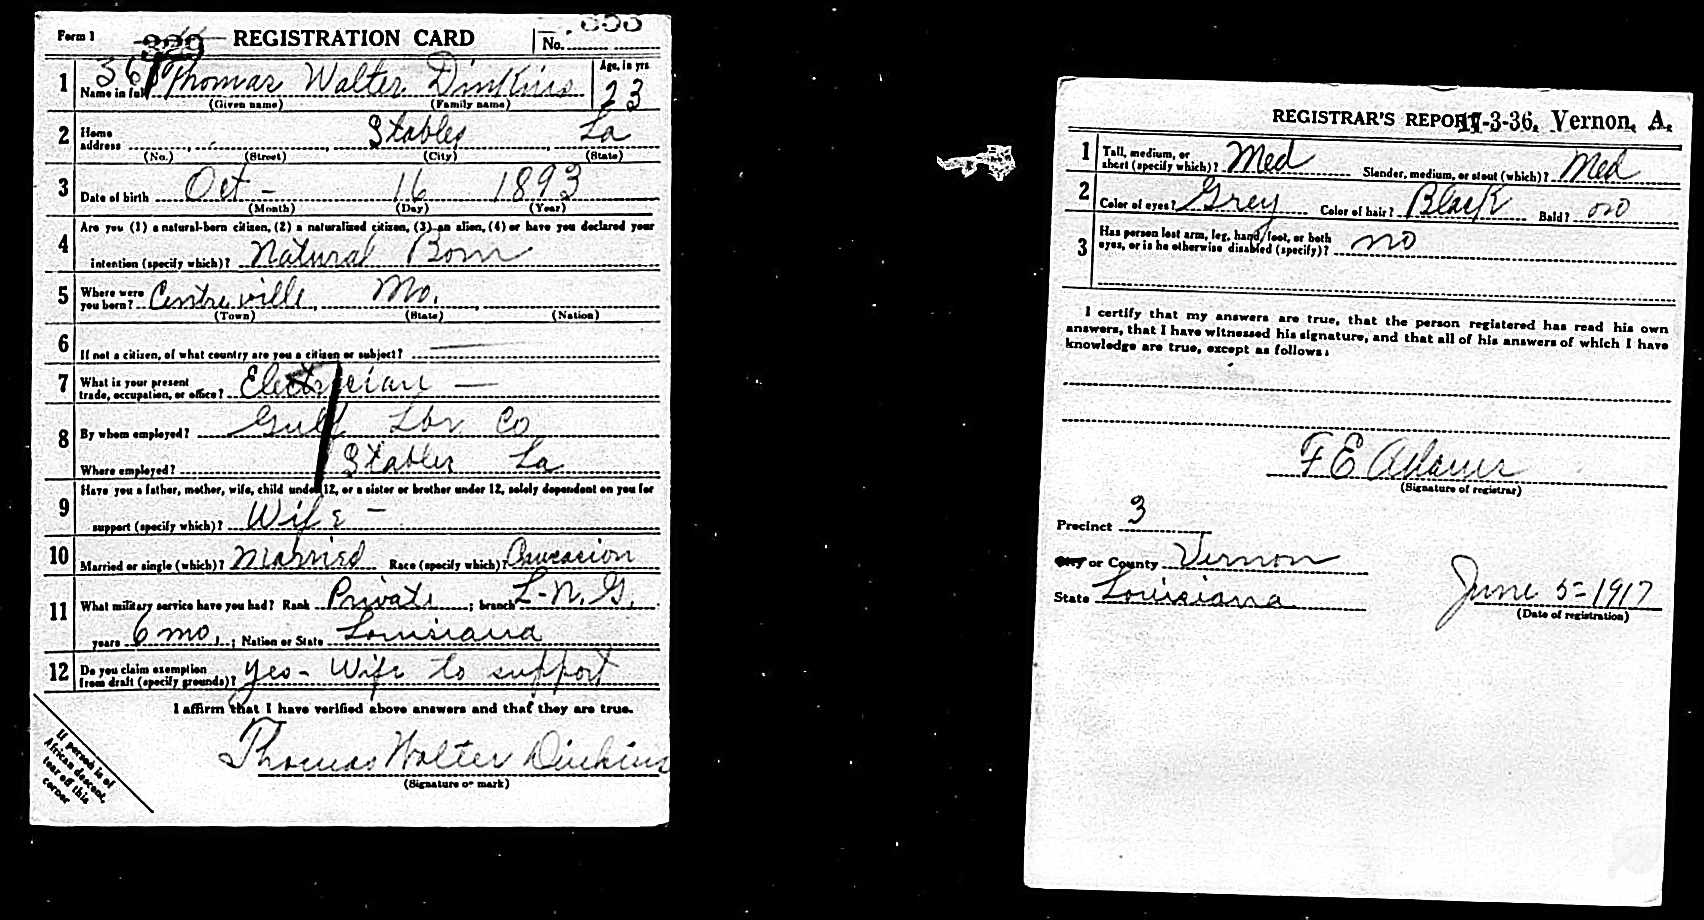 Form 1 329 REGISTRATION CARD No.
1 Name in full Thomas Walter Dinkins Age, in yrs 23
(Given name) (Family name)
2 Home address Stables La
(No.) (Street) (City) (State)
3 Date of birth Oct - 16 1893
(Month) (Day) (Year)
4 Are you (1) a natural-born citizen, (2) a naturalized citizen, (3) an alien, (4) or have you declared your
intention (specify which)? Natural Born
5 Where were you born? Centreville Mo.
(Town) (State) (Nation)
6 If not a citizen, of what country are you a citizen or subject?
7 What is your present trade, occupation, or office? Electrician —
8 By whom employed? Gulf Lbr Co
Where employed? Stables La
9 Have you a father, mother, wife, child under 12, or a sister or brother under 12, solely dependent on you for
support (specify which)? Wife -
10 Married or single (which)? Married Race (specify which)? Caucasion
11 What military service have you had? Rank Private ; branch L. N. G.
years 6 mo. ; Nation or State Louisiana
12 Do you claim exemption from draft (specify grounds)? Yes - Wife to support
I affirm that I have verified above answers and that they are true.
Thomas Walter Dinkins
(Signature or mark)
If person is of
African descent,
tear off this
corner
REGISTRAR'S REPORT 17-3-36. Vernon, A.
1 Tall, medium, or short (specify which)? Med Slender, medium, or stout (which)? Med
2 Color of eyes? Grey Color of hair? Black Bald? no
3 Has person lost arm, leg, hand, foot, or both
eyes, or is he otherwise disabled (specify)? no
I certify that my answers are true, that the person registered has read his own
answers, that I have witnessed his signature, and that all of his answers of which I have
knowledge are true, except as follows:
F E Adams
(Signature of registrar)
Precinct 3
City or County Vernon
State Louisiana June 5-1917
(Date of registration)